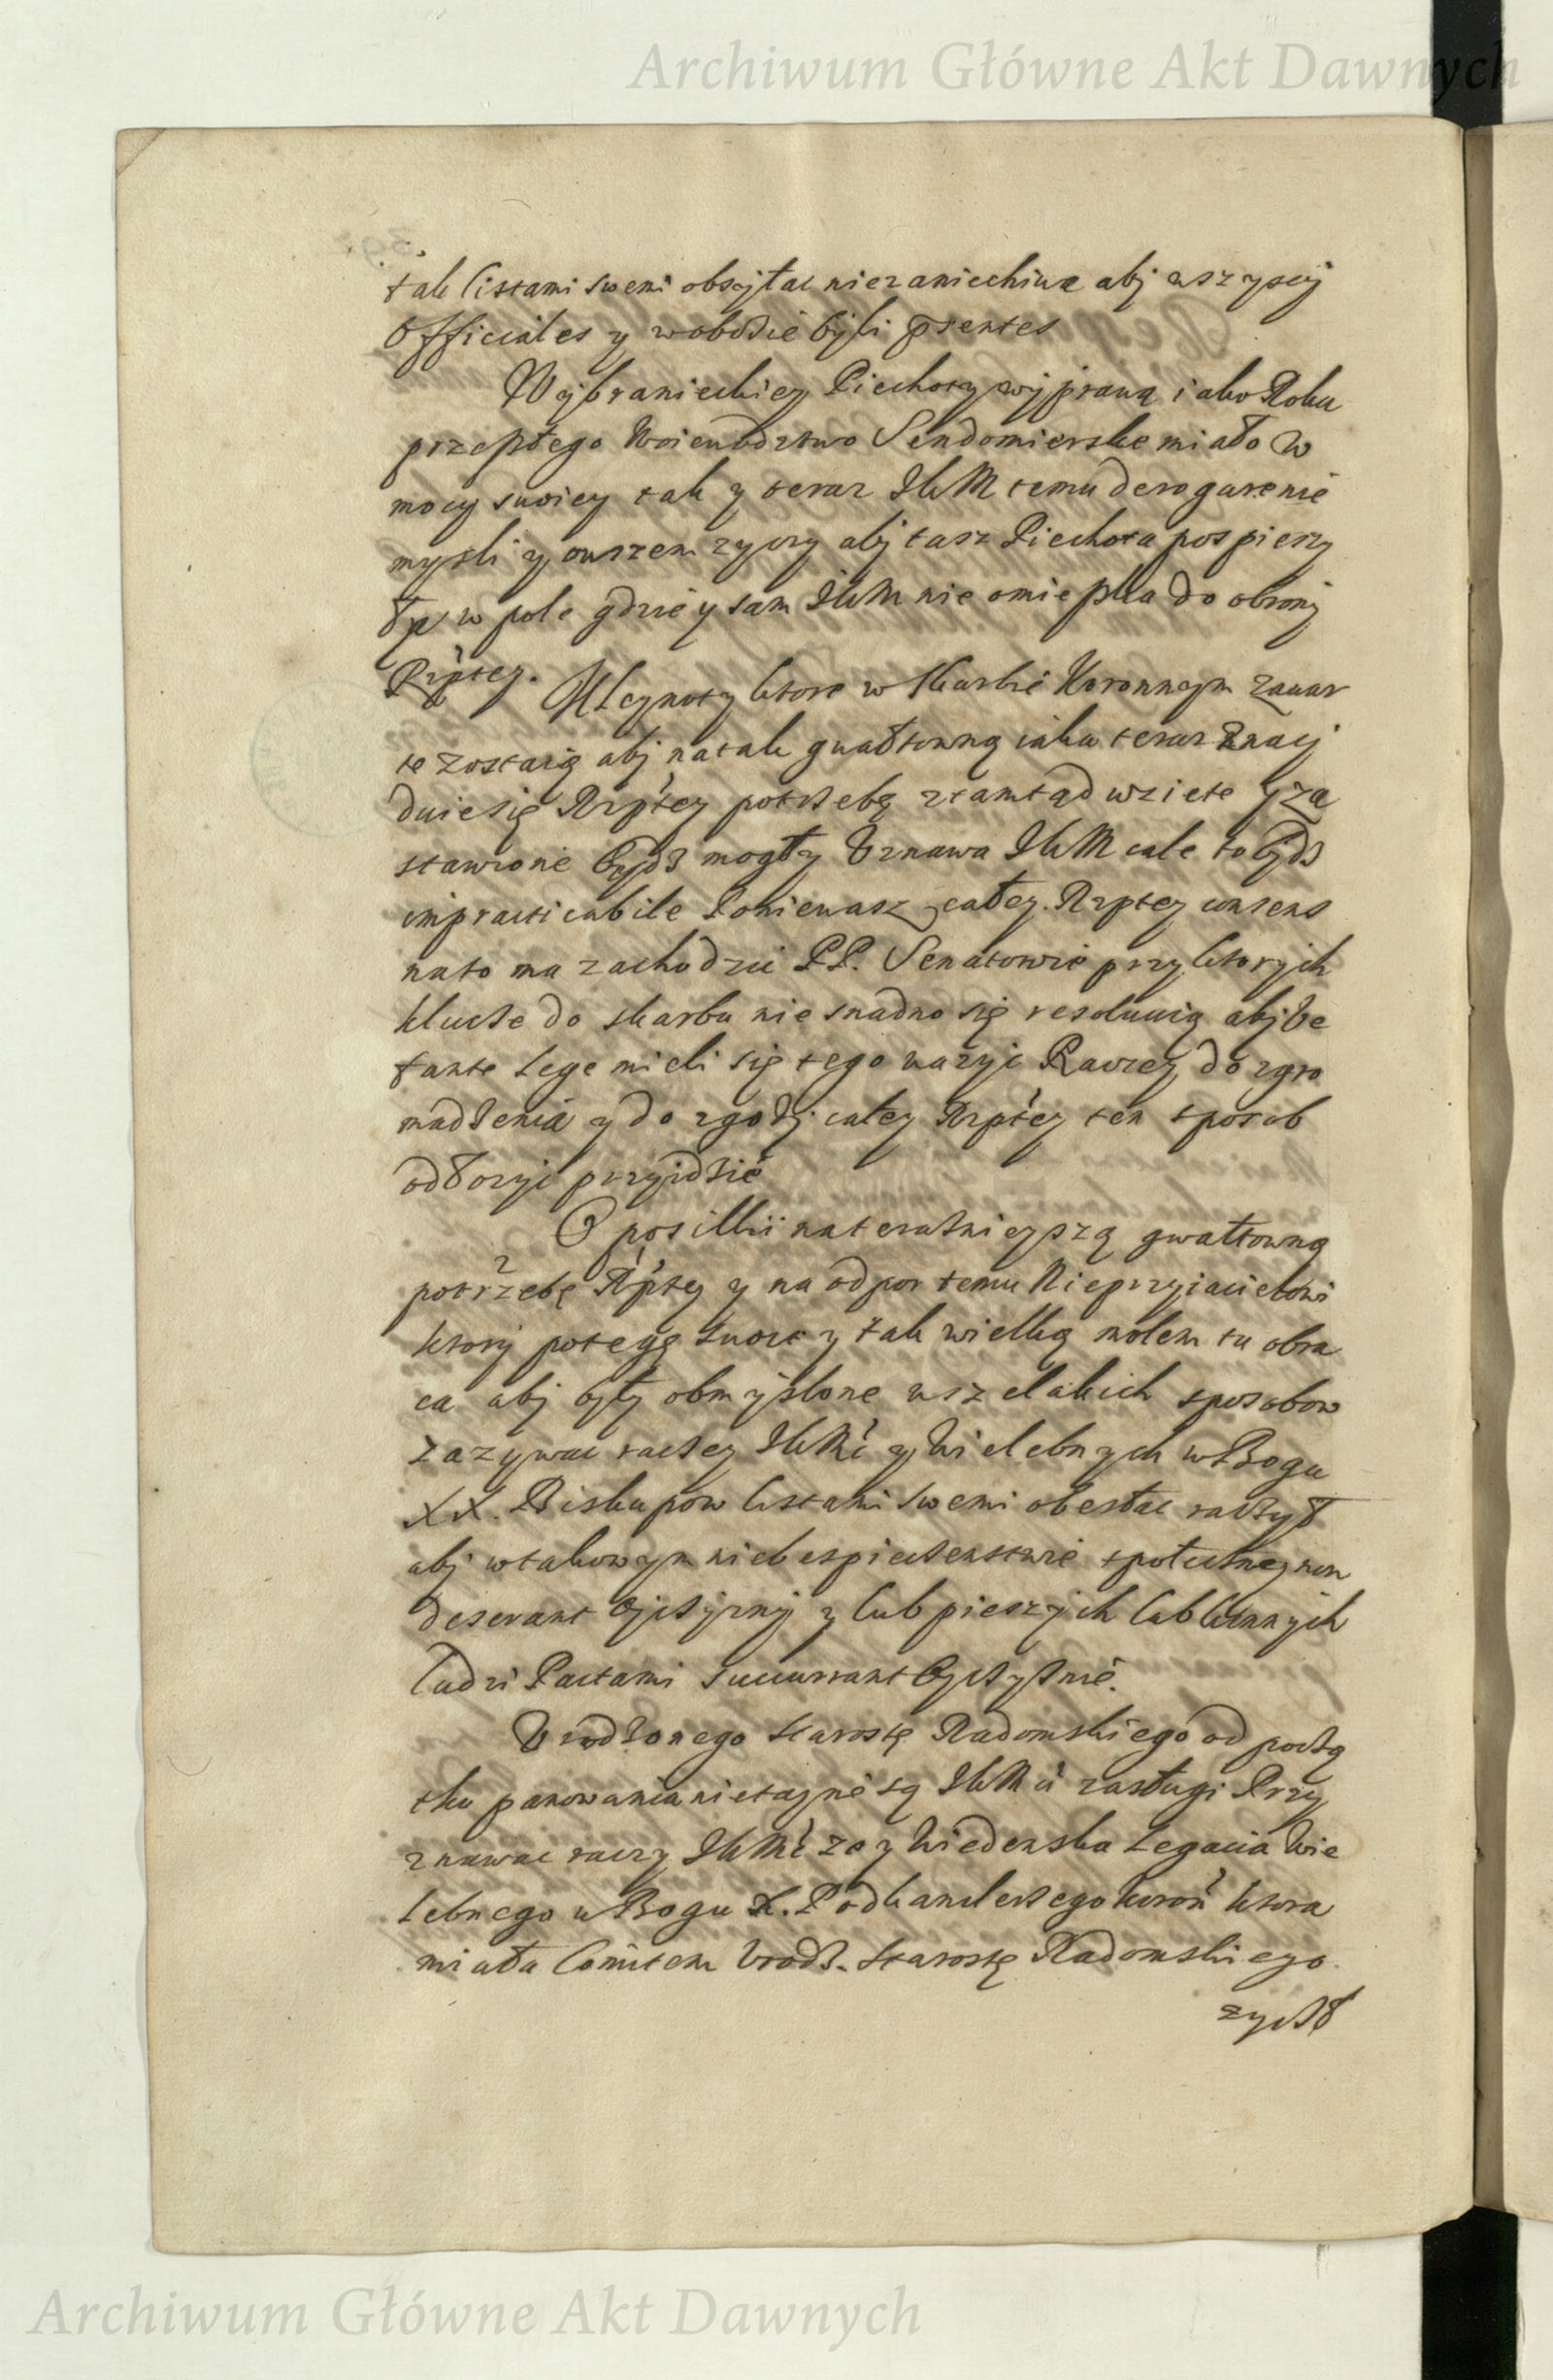 Archiwum Główne Akt Dawnych
tak listami swemi obsyłac niezaniechiwa aby wszyscy
Officiales y wobozie byli pñtes
Wybranieckiey Piechoty wyprawą iako Roku
przeszłego Woiewodztwo Sendomierskie miało w
mocy swoiey tak y teraz JKM temu derogare nie
mysli y owszem zyczy aby tasz Piechota pospieszy
ła w pole gdzie y sam JKM nie omieszka do obrony
Rzptey.
Kleynoty ktore w Skarbie Koronnym zawar
te zostaią aby natak gwałtowną iaka teraz znay
duie się Rzptey potrzebę ztamtąd wziete y za
stawione bydz mogły Uznawa JKM cale to bydz
impracticabile Poniewasz całey Rzptey consens
nato ma zachodzic PP. Senatorowie przy ktorych
klucze do skarbu nie snadno się resolvuią aby ve
tante Lege mieli się tego wazyc Raczey do zgro
madzenia y do zgody całey Rzptey ten sposob
odłozyc przyidzie
O posilki na teraznieyszą gwałtowną
potrzebę Rzptey y na odpor temu Nieprzyiacielowi
ktory potegę swoię y tak wielką molem tu obra
ca aby były obmyslone wszelakich sposobow
zazywac raczy JKMć y Wielebnych w Bogu
XX. Biskupow listami swemi obesłac raczył
aby wtakowym niebespieczenstwie społecznym non
deserant Oyczyzny y lub pieszych lub konnych
ludzi Pocztami succurrant Oyczyznie.
Urodzonego Starostę Radomskiego od począ
tku panowania nietayne są JKMci zasługi Przy
znawac raczy JKMć ze y Wiedenska Legacia Wie
lebnego w Bogu X. Podkanclerzego Koroń ktora
miała Comitem Urodz. Starostę Radomskiego
zyczył
Archiwum Główne Akt Dawnych